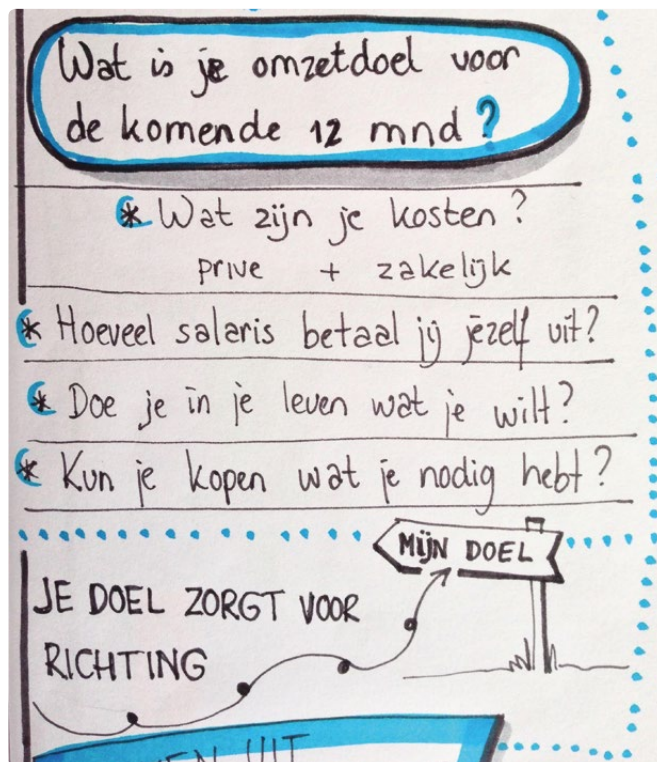 Wat is je omzetdoel voor
de komende 12 mnd?
* Wat zijn je kosten?
prive + zakelijk
* Hoeveel salaris betaal jij jezelf uit?
* Doe je in je leven wat je wilt?
* Kun je kopen wat je nodig hebt?
MIJN DOEL
JE DOEL ZORGT VOOR
RICHTING
UIT